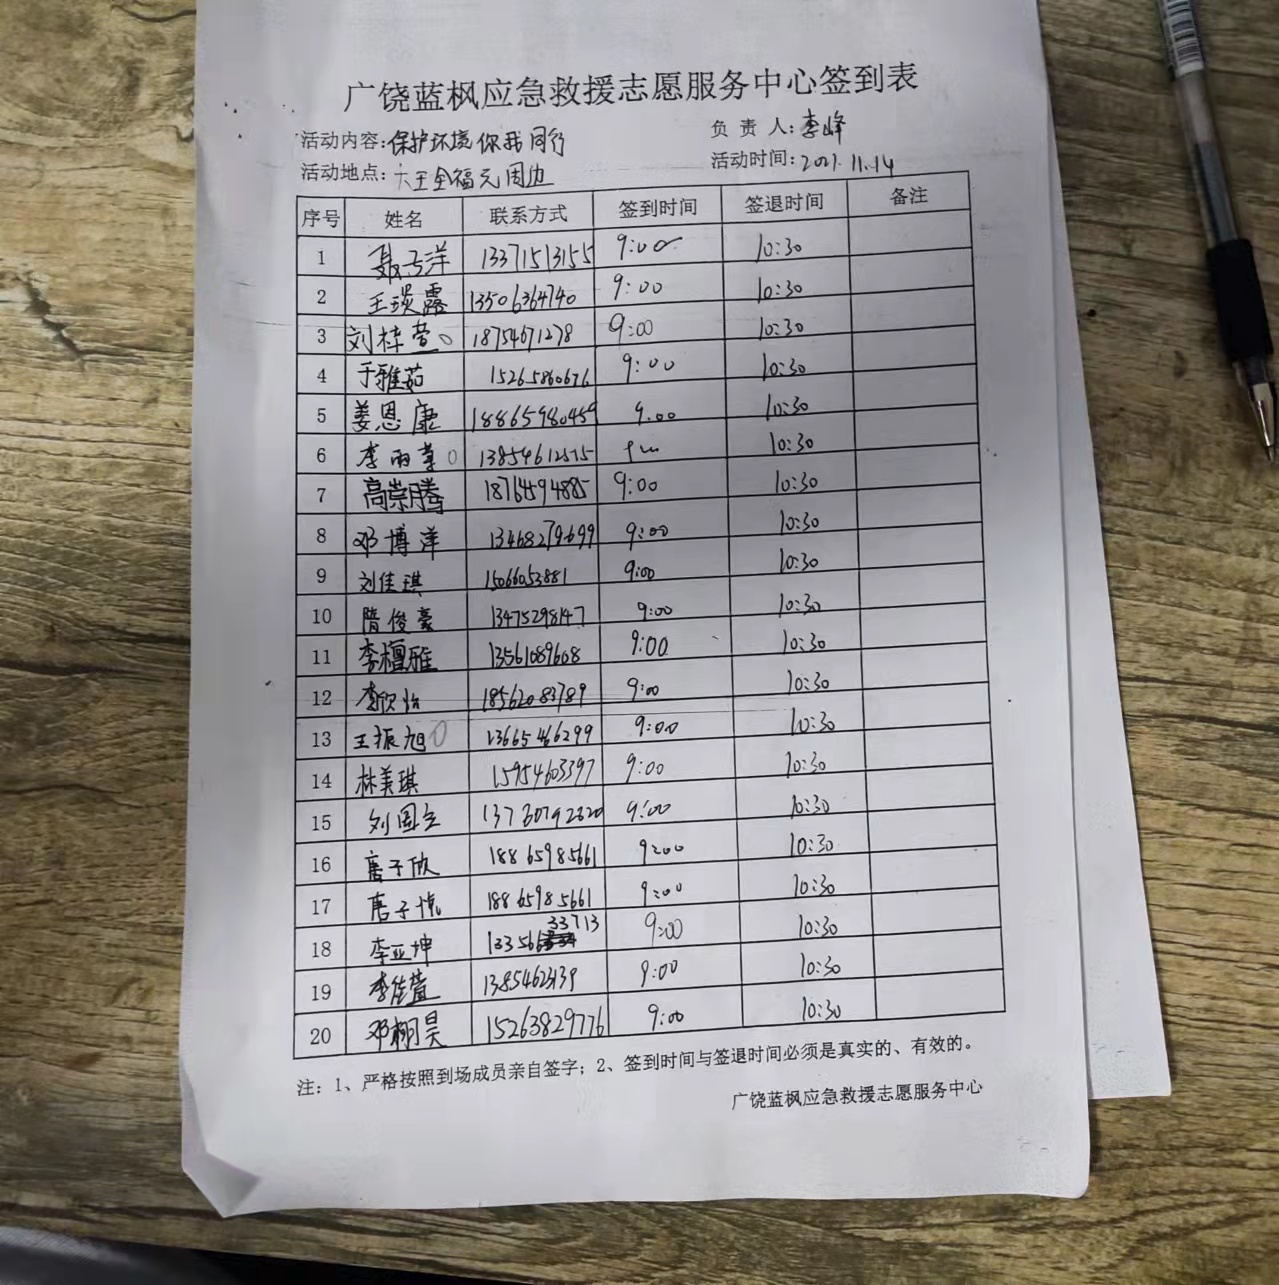 广饶蓝枫应急救援志愿服务中心签到表
活动内容:保护环境你我同行 负责人:李峰
活动地点:大王全福元周边 活动时间:2021.11.14
序号 姓名 联系方式 签到时间 签退时间 备注
1 聂子洋 13371513155 9:00 10:30
2 王琰露 13506364740 9:00 10:30
3 刘梓萱 18754671278 9:00 10:30
4 于雅茹 15265860676 9:00 10:30
5 姜恩康 18865980459 9.00 10:30
6 李雨 13854612575 10:30
7 高崇腾 18764594885 9:00 10:30
8 邓博洋 13468279699 9:00 10:30
9 刘佳琪 15066053881 9:00 10:30
10 隋俊豪 13475298147 9:00 10:30
11 李檀雅 13561089608 9:00 10:30
12 李欣怡 18562083789 9:00 10:30
13 王振旭 13665466299 9:00 10:30
14 林美琪 15954603397 9:00 10:30
15 刘国立 13730792320 9:00 10:30
16 唐子欣 18865985661 9:00 10:30
17 唐子悦 18865985661 9:00 10:30
18 李亚坤 13356633713 9:00 10:30
19 李佳萱 1385462139 9:00 10:30
20 邓栩昊 15263829776 9:00 10:30
注:1、严格按照到场成员亲自签字;2、签到时间与签退时间必须是真实的、有效的。
广饶蓝枫应急救援志愿服务中心